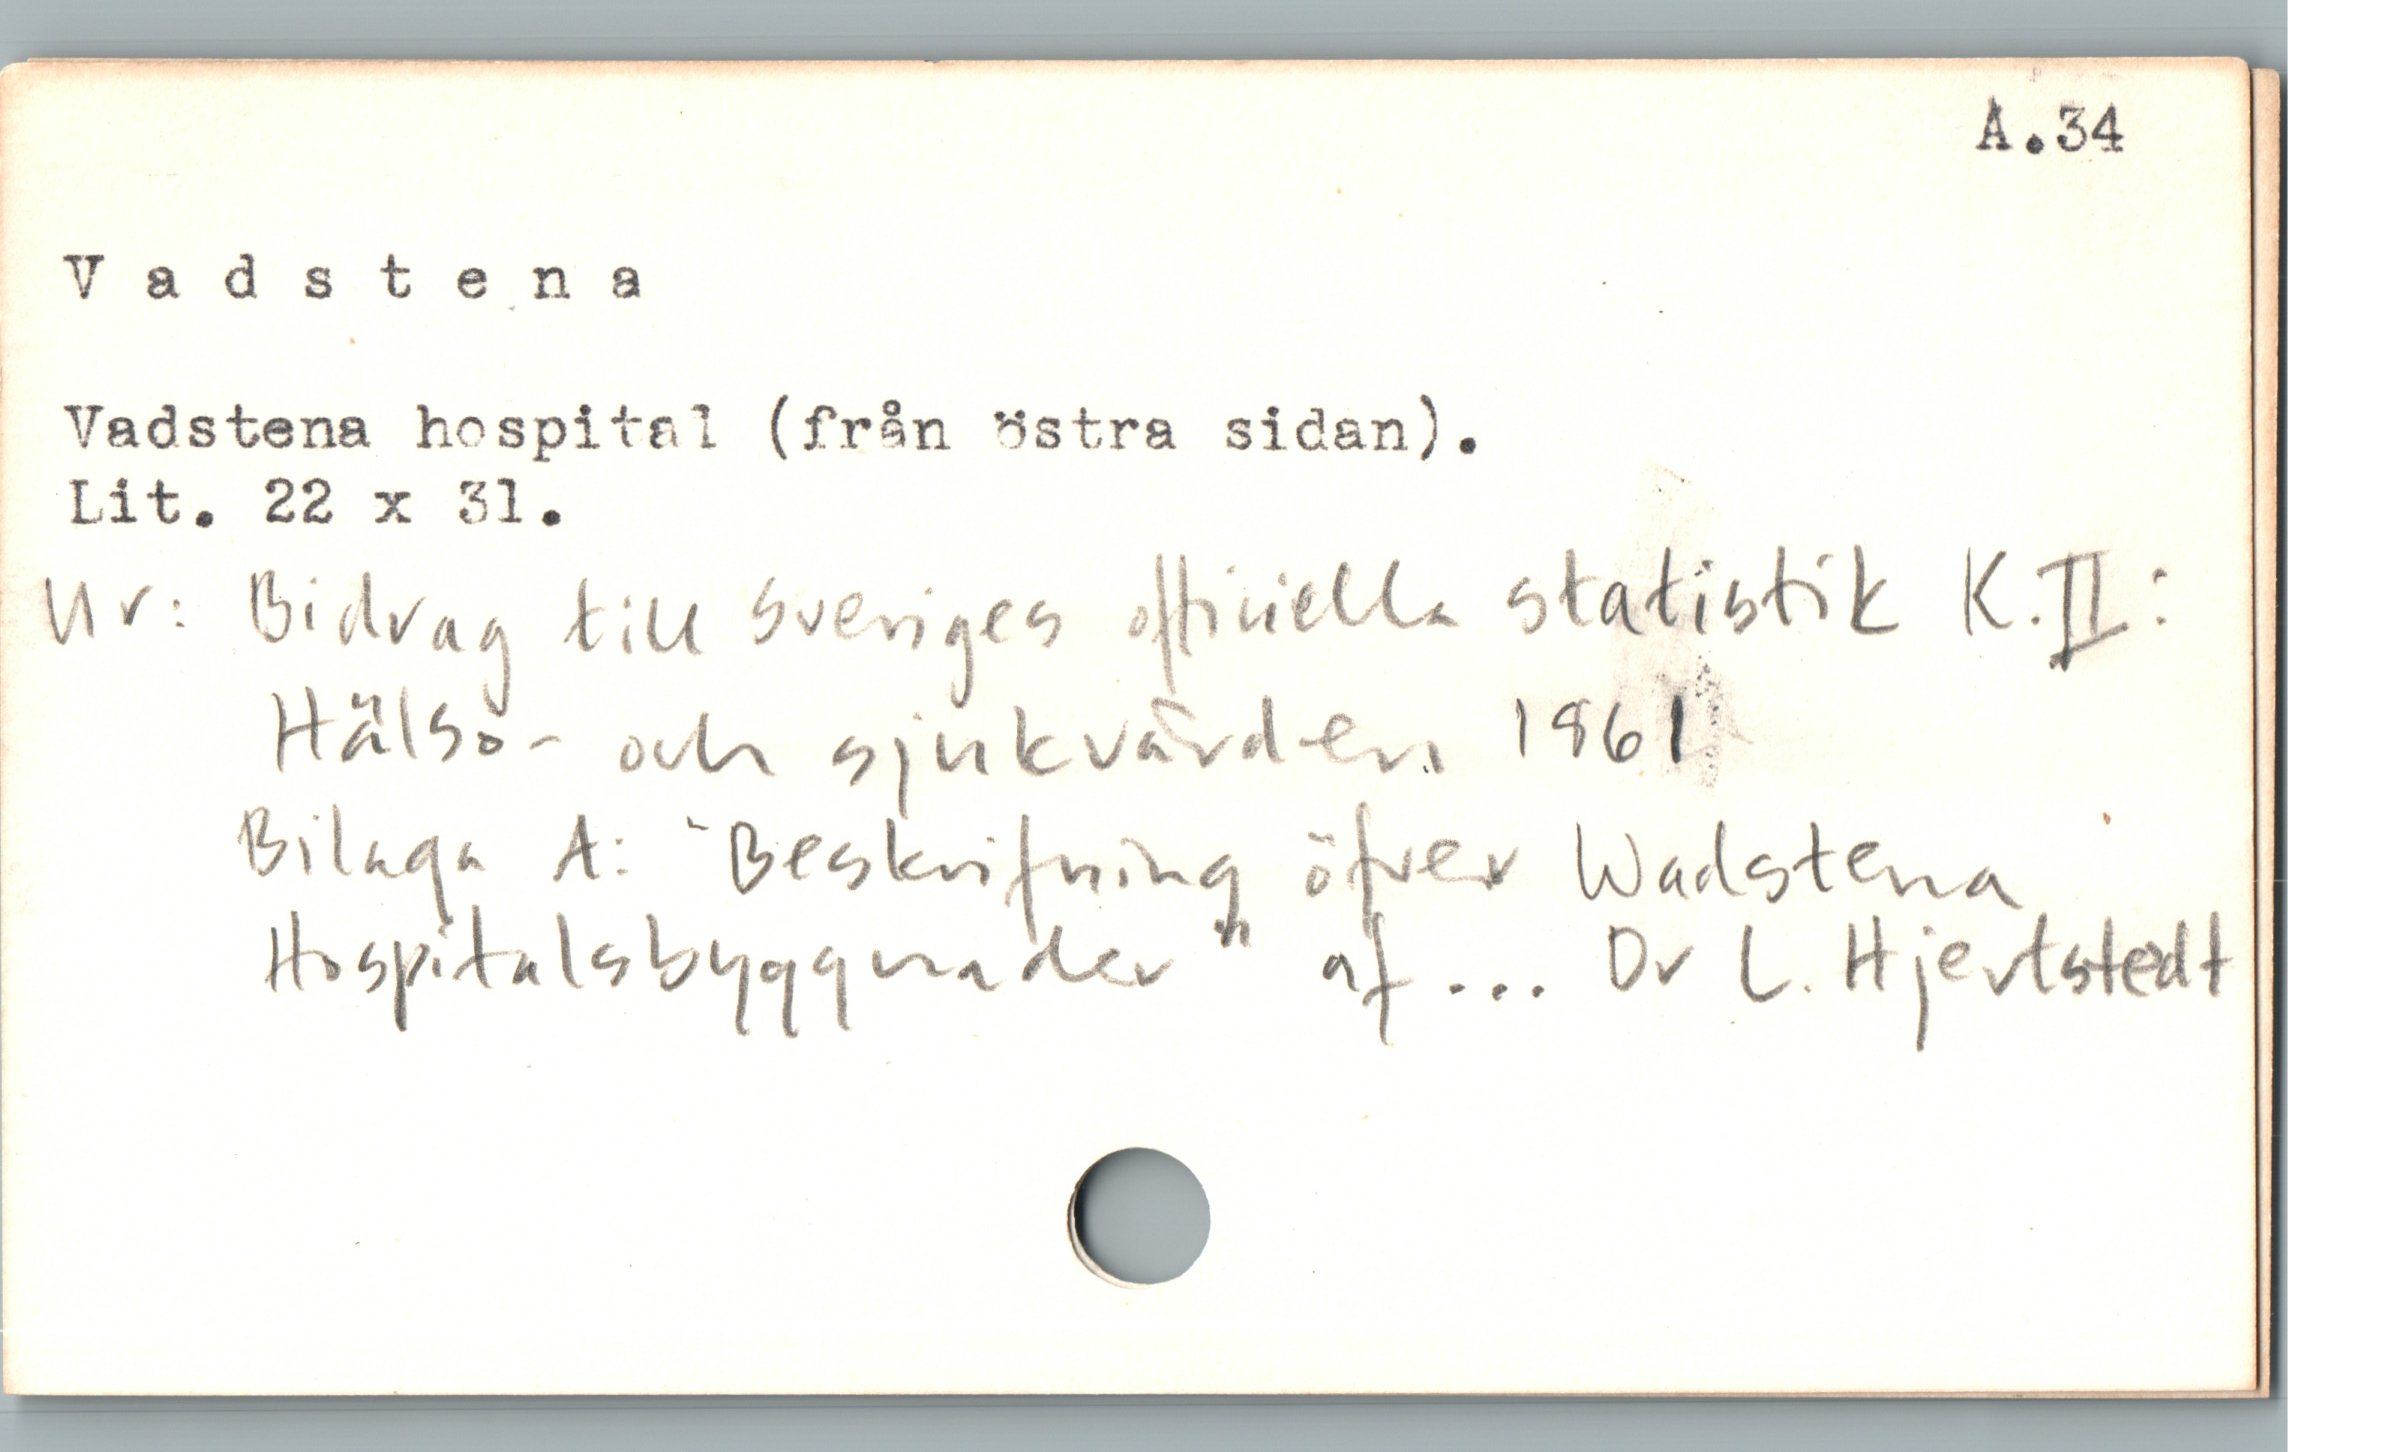 A.34
V a d s t e n a
Vadstena hospital (från östra sidan).
Lit. 22 x 31.
Ur: Bidrag till Sveriges officiella statistik K.II:
Hälso- och sjukvården 1861
Bilaga A: "Beskrifning öfver Wadstena
Hospitalsbyggnader" af ... Dr L. Hjertstedt